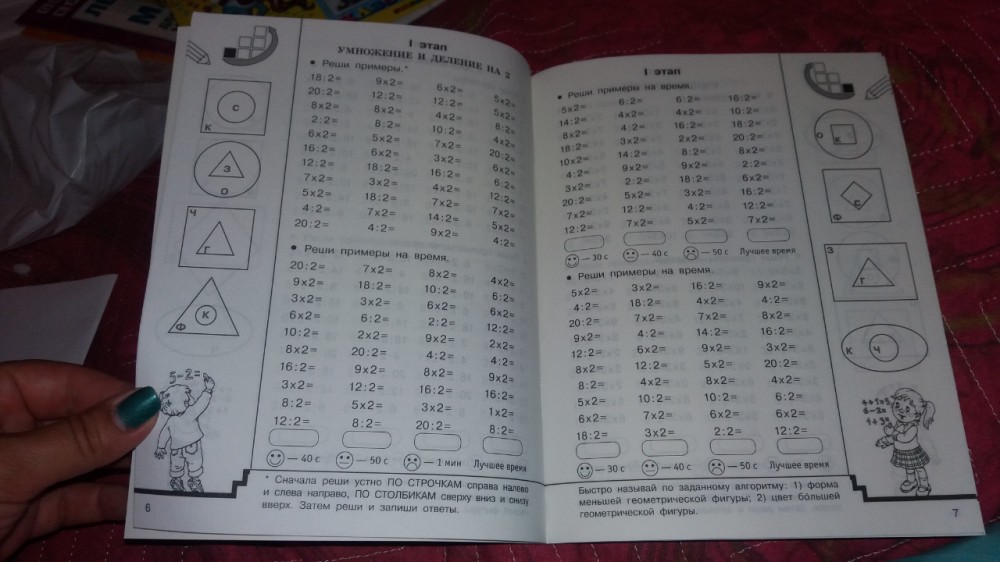 I этап
УМНОЖЕНИЕ И ДЕЛЕНИЕ НА 2
• Реши примеры.*
18:2= 9x2= 6x2= 5x2=
20:2= 12:2= 12:2= 5x2=
8x2= 8x2= 4x2= 8:2=
2:2= 8:2= 10:2= 4x2=
6x2= 5x2= 7x2= 20:2=
16:2= 6x2= 3x2= 6x2=
12:2= 18:2= 16:2= 6:2=
7x2= 3x2= 4x2= 12:2=
5x2= 18:2= 7x2= 7x2=
4:2= 7x2= 14:2= 5x2=
20:2= 4:2= 9x2= 4:2=
• Реши примеры на время.
20:2= 7x2= 8x2= 4x2=
9x2= 18:2= 10:2= 6:2=
3x2= 3x2= 6x2= 6x2=
6x2= 6:2= 2:2= 12:2=
10:2= 2x2= 9x2= 2x2=
8x2= 20:2= 4:2= 4:2=
16:2= 9x2= 8x2= 9x2=
3x2= 12:2= 16:2= 16:2=
8:2= 5x2= 3x2= 1x2=
12:2= 8:2= 20:2= 8:2=
— 40 с — 50 с — 1 мин Лучшее время
* Сначала реши устно ПО СТРОЧКАМ справа налево
и слева направо, ПО СТОЛБИКАМ сверху вниз и снизу
вверх. Затем реши и запиши ответы.
6
С
К
З
О
Ч
Г
К
Ф
5-2=
I этап
• Реши примеры на время.
5x2= 6:2= 6:2= 16:2=
14:2= 4x2= 4x2= 10:2=
8x2= 4:2= 16:2= 18:2=
18:2= 3x2= 2x2= 20:2=
10x2= 14:2= 8:2= 8x2=
4:2= 9x2= 9x2= 2:2=
3x2= 2:2= 18:2= 6x2=
20:2= 5x2= 3x2= 16:2=
7x2= 12:2= 4:2= 12:2=
12:2= 7x2= 5x2= 7x2=
— 30 с — 40 с — 50 с Лучшее время
• Реши примеры на время.
5x2= 3x2= 16:2= 9x2=
4:2= 18:2= 4x2= 4:2=
20:2= 7x2= 7x2= 8:2=
9x2= 4:2= 14:2= 16:2=
12:2= 6x2= 9x2= 3x2=
8x2= 12:2= 5x2= 20:2=
8:2= 4x2= 8x2= 4x2=
5x2= 10:2= 10:2= 6:2=
6x2= 7x2= 6x2= 6x2=
18:2= 3x2= 2:2= 12:2=
— 30 с — 40 с — 50 с Лучшее время
Быстро называй по заданному алгоритму: 1) форма
меньшей геометрической фигуры; 2) цвет бо́льшей
геометрической фигуры.
7
О
К
С
Ф
З
Г
К
Ч